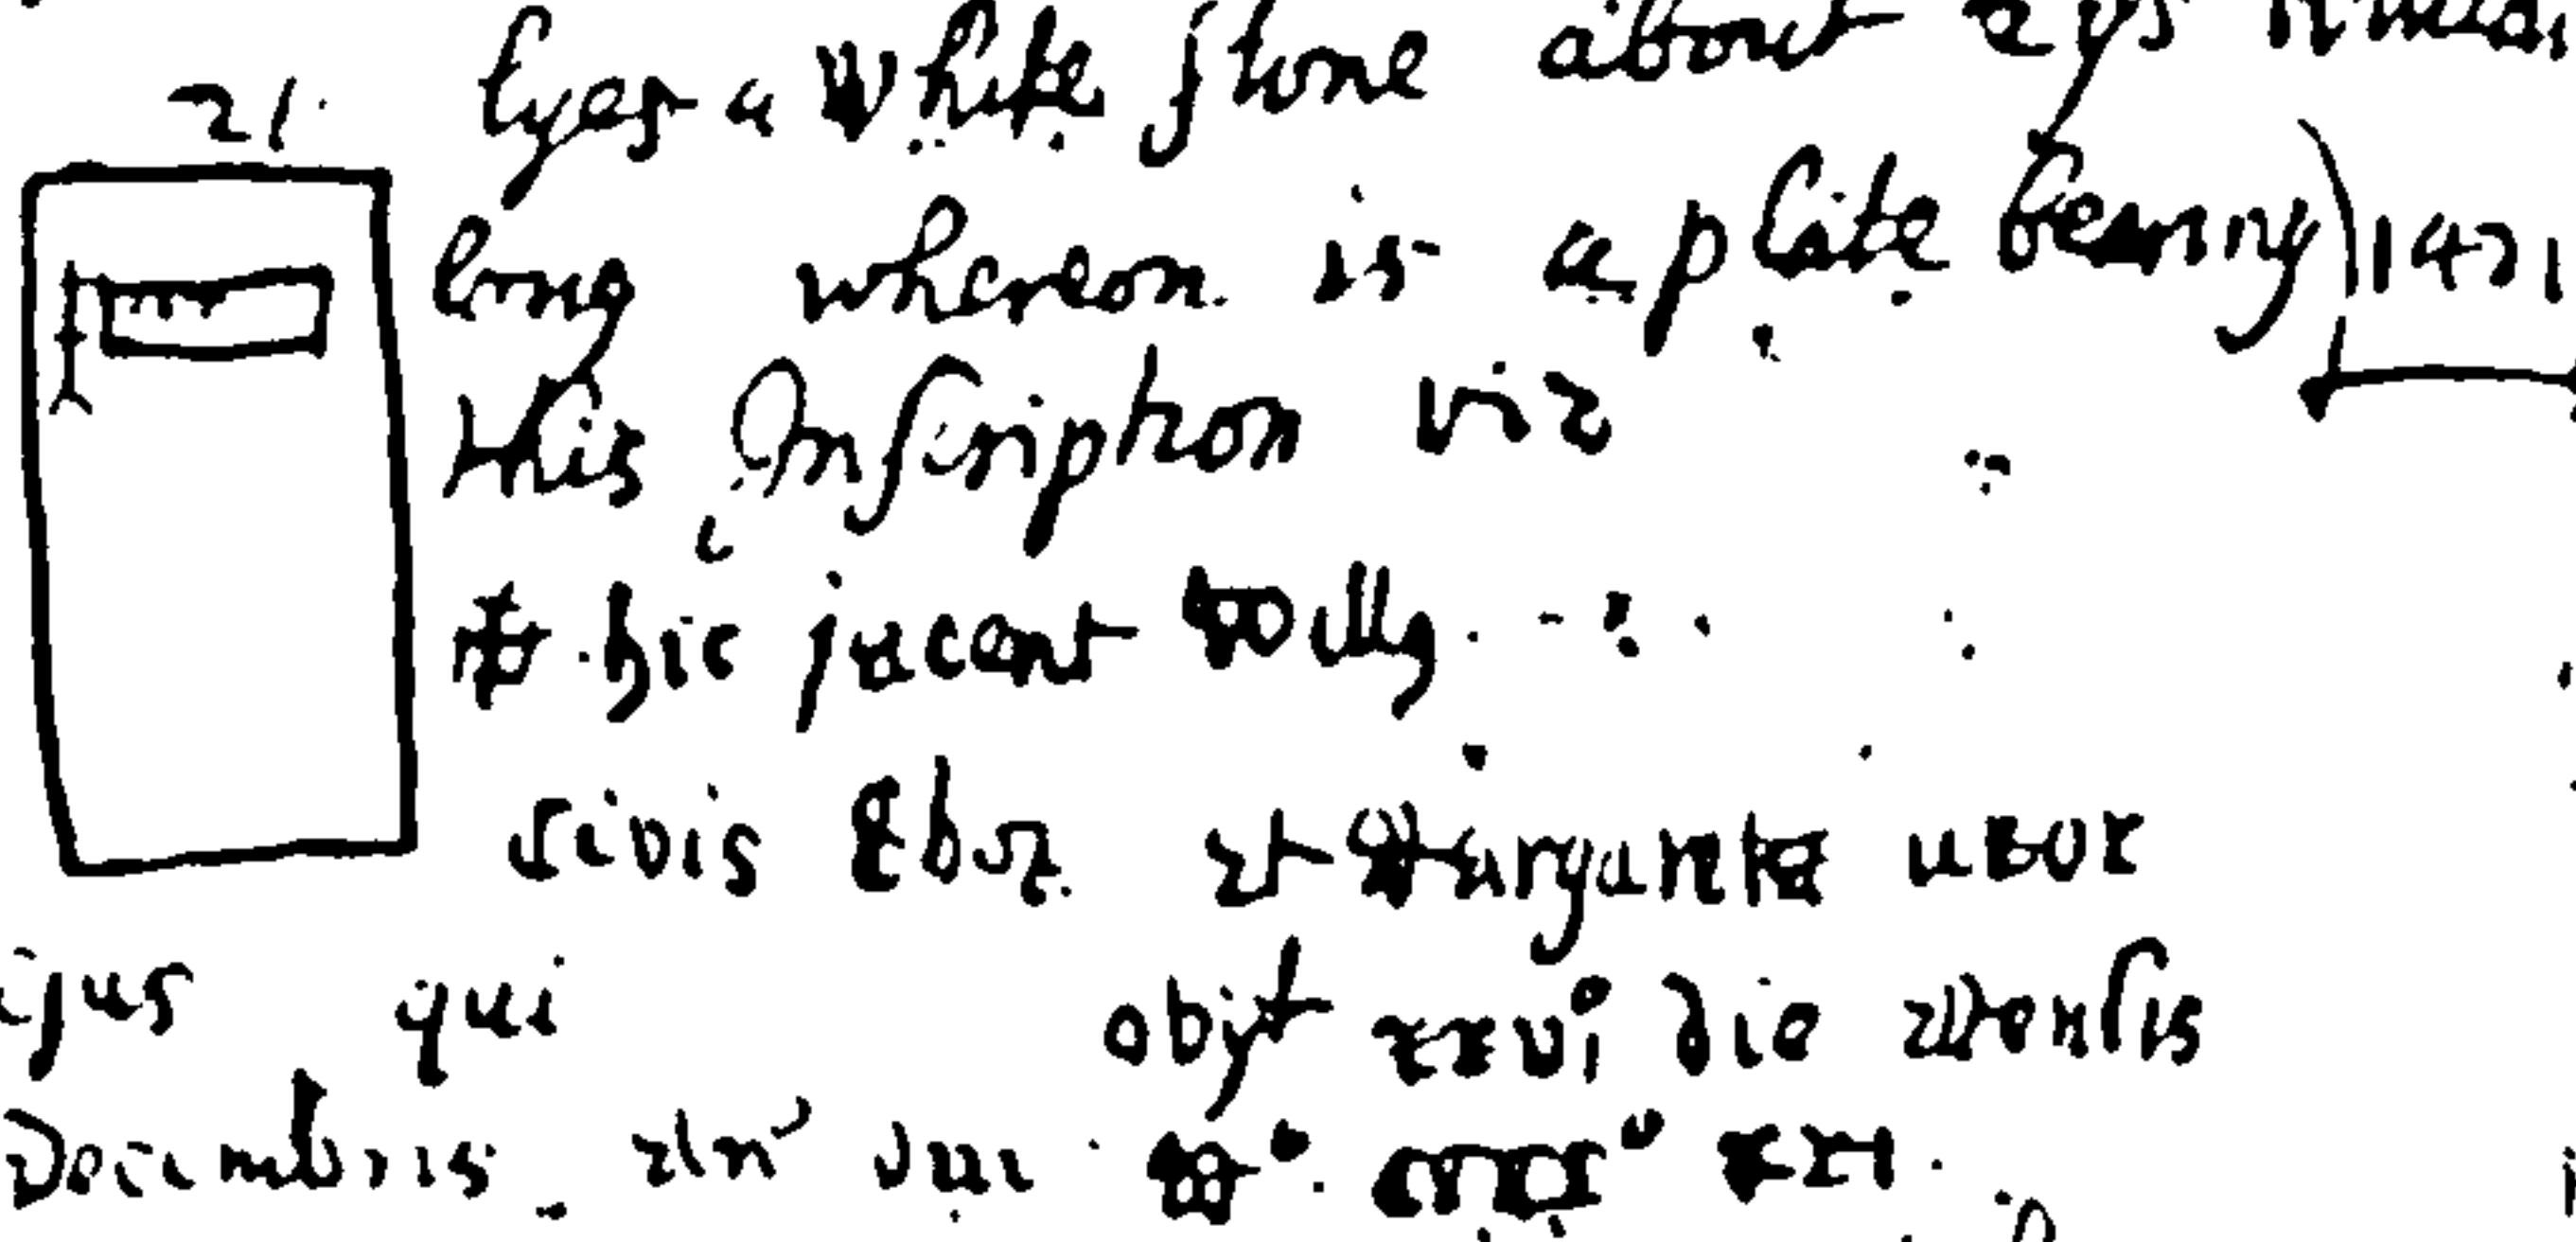 21. lyes a white stone about 2 yds
long whereon is a plate bearing 1471
this Inscription viz
hic jacent Willus
Civis Ebor. et Margareta uxor
ejus qui obijt xxvi die Mensis
Decembris An̄ Dn̄i